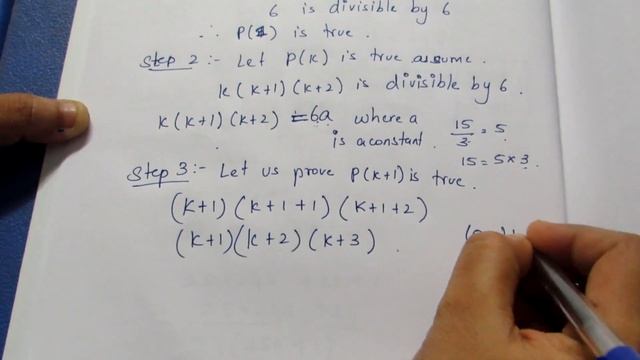 6 is divisible by 6
∴ P(1) is true.
Step 2:- Let P(k) is true assume.
k(k+1)(k+2) is divisible by 6.
k(k+1)(k+2) = 6a where a
is a constant.
15/3 = 5
15 = 5×3.
Step 3:- Let us prove P(k+1) is true.
(k+1)(k+1+1)(k+1+2)
(k+1)(k+2)(k+3).